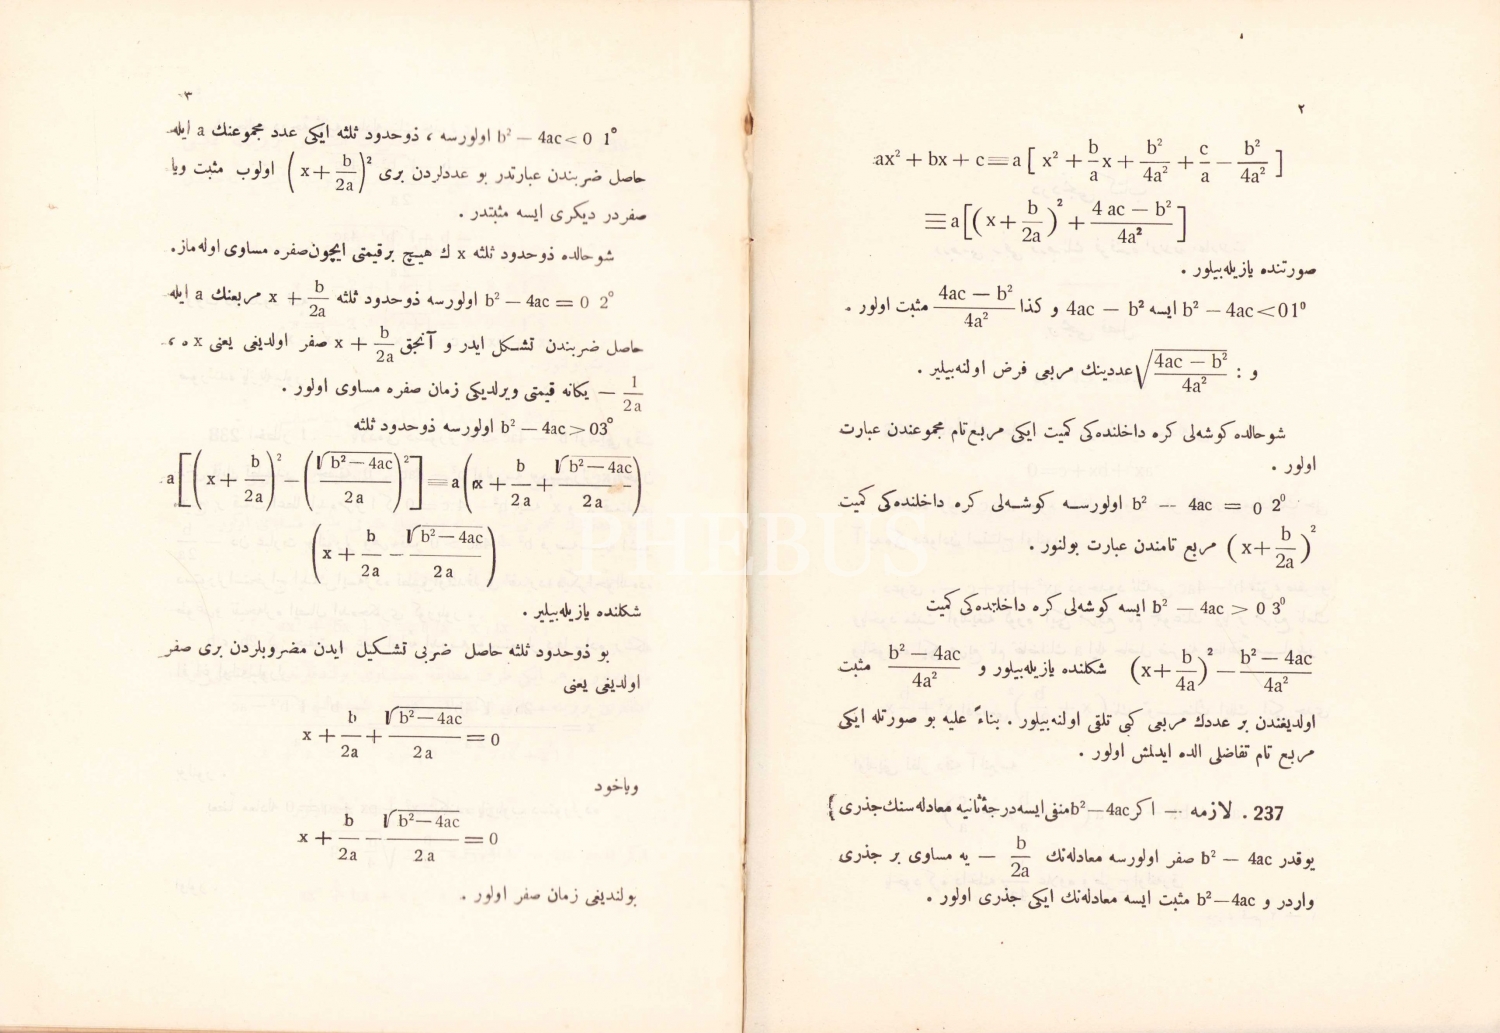 ٢
ax² + bx + c ≡ a [ x² + b/a x + b²/4a² + c/a − b²/4a² ]
≡ a [ ( x + b/2a )² + 4 ac − b²/4a² ]
صورتنده يازيله‌بيلور .
b² − 4ac < 0 1⁰ ايسه 4ac − b² و كذا 4ac − b²/4a² مثبت اولور .
و : √(4ac − b²/4a²) عددينك مربعى فرض اولنه‌بيلير .
شو حالده كوشه‌لى كره داخلنده‌كى كميت ايكى مربع تام مجموعندن عبارت
اولور .
b² − 4ac = 0 2⁰ اولورسه كوشه‌لى كره داخلنده‌كى كميت
( x + b/2a )² مربع تامندن عبارت بولنور .
b² − 4ac > 0 3⁰ ايسه كوشه‌لى كره داخلنده‌كى كميت
( x + b/4a )² − b² − 4ac/4a² شكلنده يازيله‌بيلور و b² − 4ac/4a² مثبت
اولديغندن بر عددك مربعى كبى تلقى اولنه‌بيلور . بناءً عليه بو صورتله ايكى
مربع تام تفاضلى الده ايدلمش اولور .
237 . لازمه — اكر b² − 4ac منفى ايسه درجهٔ ثانيه معادله‌سنك جذرى
يوقدر b² − 4ac صفر اولورسه معادله‌نك b/2a — يه مساوى بر جذرى
واردر و b² − 4ac مثبت ايسه معادله‌نك ايكى جذرى اولور .
٣
b² − 4ac < 0 1° اولورسه ، ذوحدود ثلثه ايكى عدد مجموعنك a ايله
حاصل ضربندن عبارتدر بو عددلردن برى ( x + b/2a )² اولوب مثبت ويا
صفردر ديكرى ايسه مثبتدر .
شو حالده ذوحدود ثلثه x ك هيچ برقيمتى ايچون صفره مساوى اوله‌ماز.
b² − 4ac = 0 2° اولورسه ذوحدود ثلثه x + b/2a مربعنك a ايله
حاصل ضربندن تشكل ايدر و آنجق x + b/2a صفر اولديغى يعنى x ه ،
1/2a — يكانه قيمتى ويرلديكى زمان صفره مساوى اولور .
b² − 4ac > 0 3° اولورسه ذوحدود ثلثه
a [ ( x + b/2a )² − ( √(b² − 4ac)/2a )² ] ≡ a ( x + b/2a + √(b² − 4ac)/2a )
( x + b/2a − √(b² − 4ac)/2a )
شكلنده يازيله‌بيلير .
بو ذوحدود ثلثه حاصل ضربى تشكيل ايدن مضروبلردن برى صفر
اولديغى يعنى
x + b/2a + √(b² − 4ac)/2a = 0
وياخود
x + b/2a − √(b² − 4ac)/2a = 0
بولنديغى زمان صفر اولور .
PHEBUS